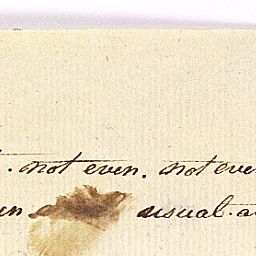 . not even. not eve
usual. a